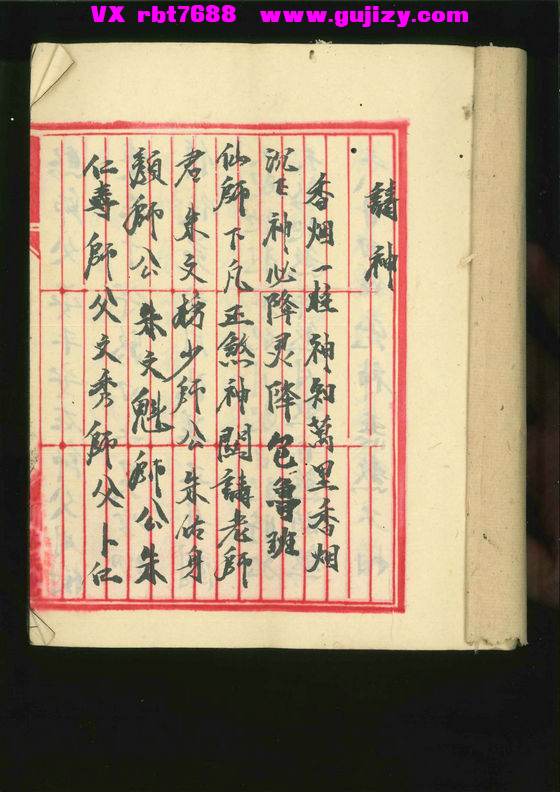 VX rbt7688 www.gujizy.com
請神
香烟一炷神神知萬里香烟
沉下神神必降灵降包魯班
仙師下凡正煞神関請老師
君朱文榜少師公朱佑身
顏師公朱文魁師公朱
仁寿師父文秀師父卜仁